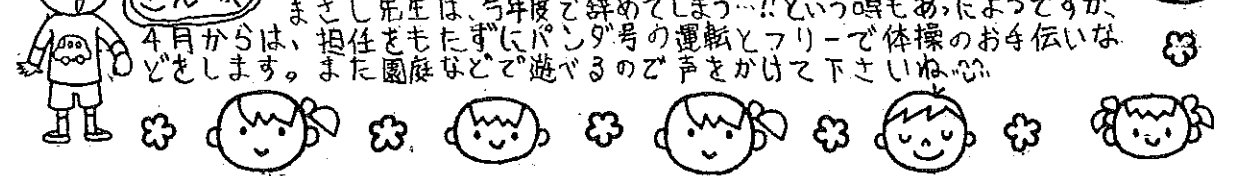 まさし先生は、今年度で辞めてしまう…!!という噂もあったようですが、
4月からは、担任をもたずにパンダ号の運転とフリーで体操のお手伝いな
どをします。また園庭などで遊べるので声をかけて下さいね